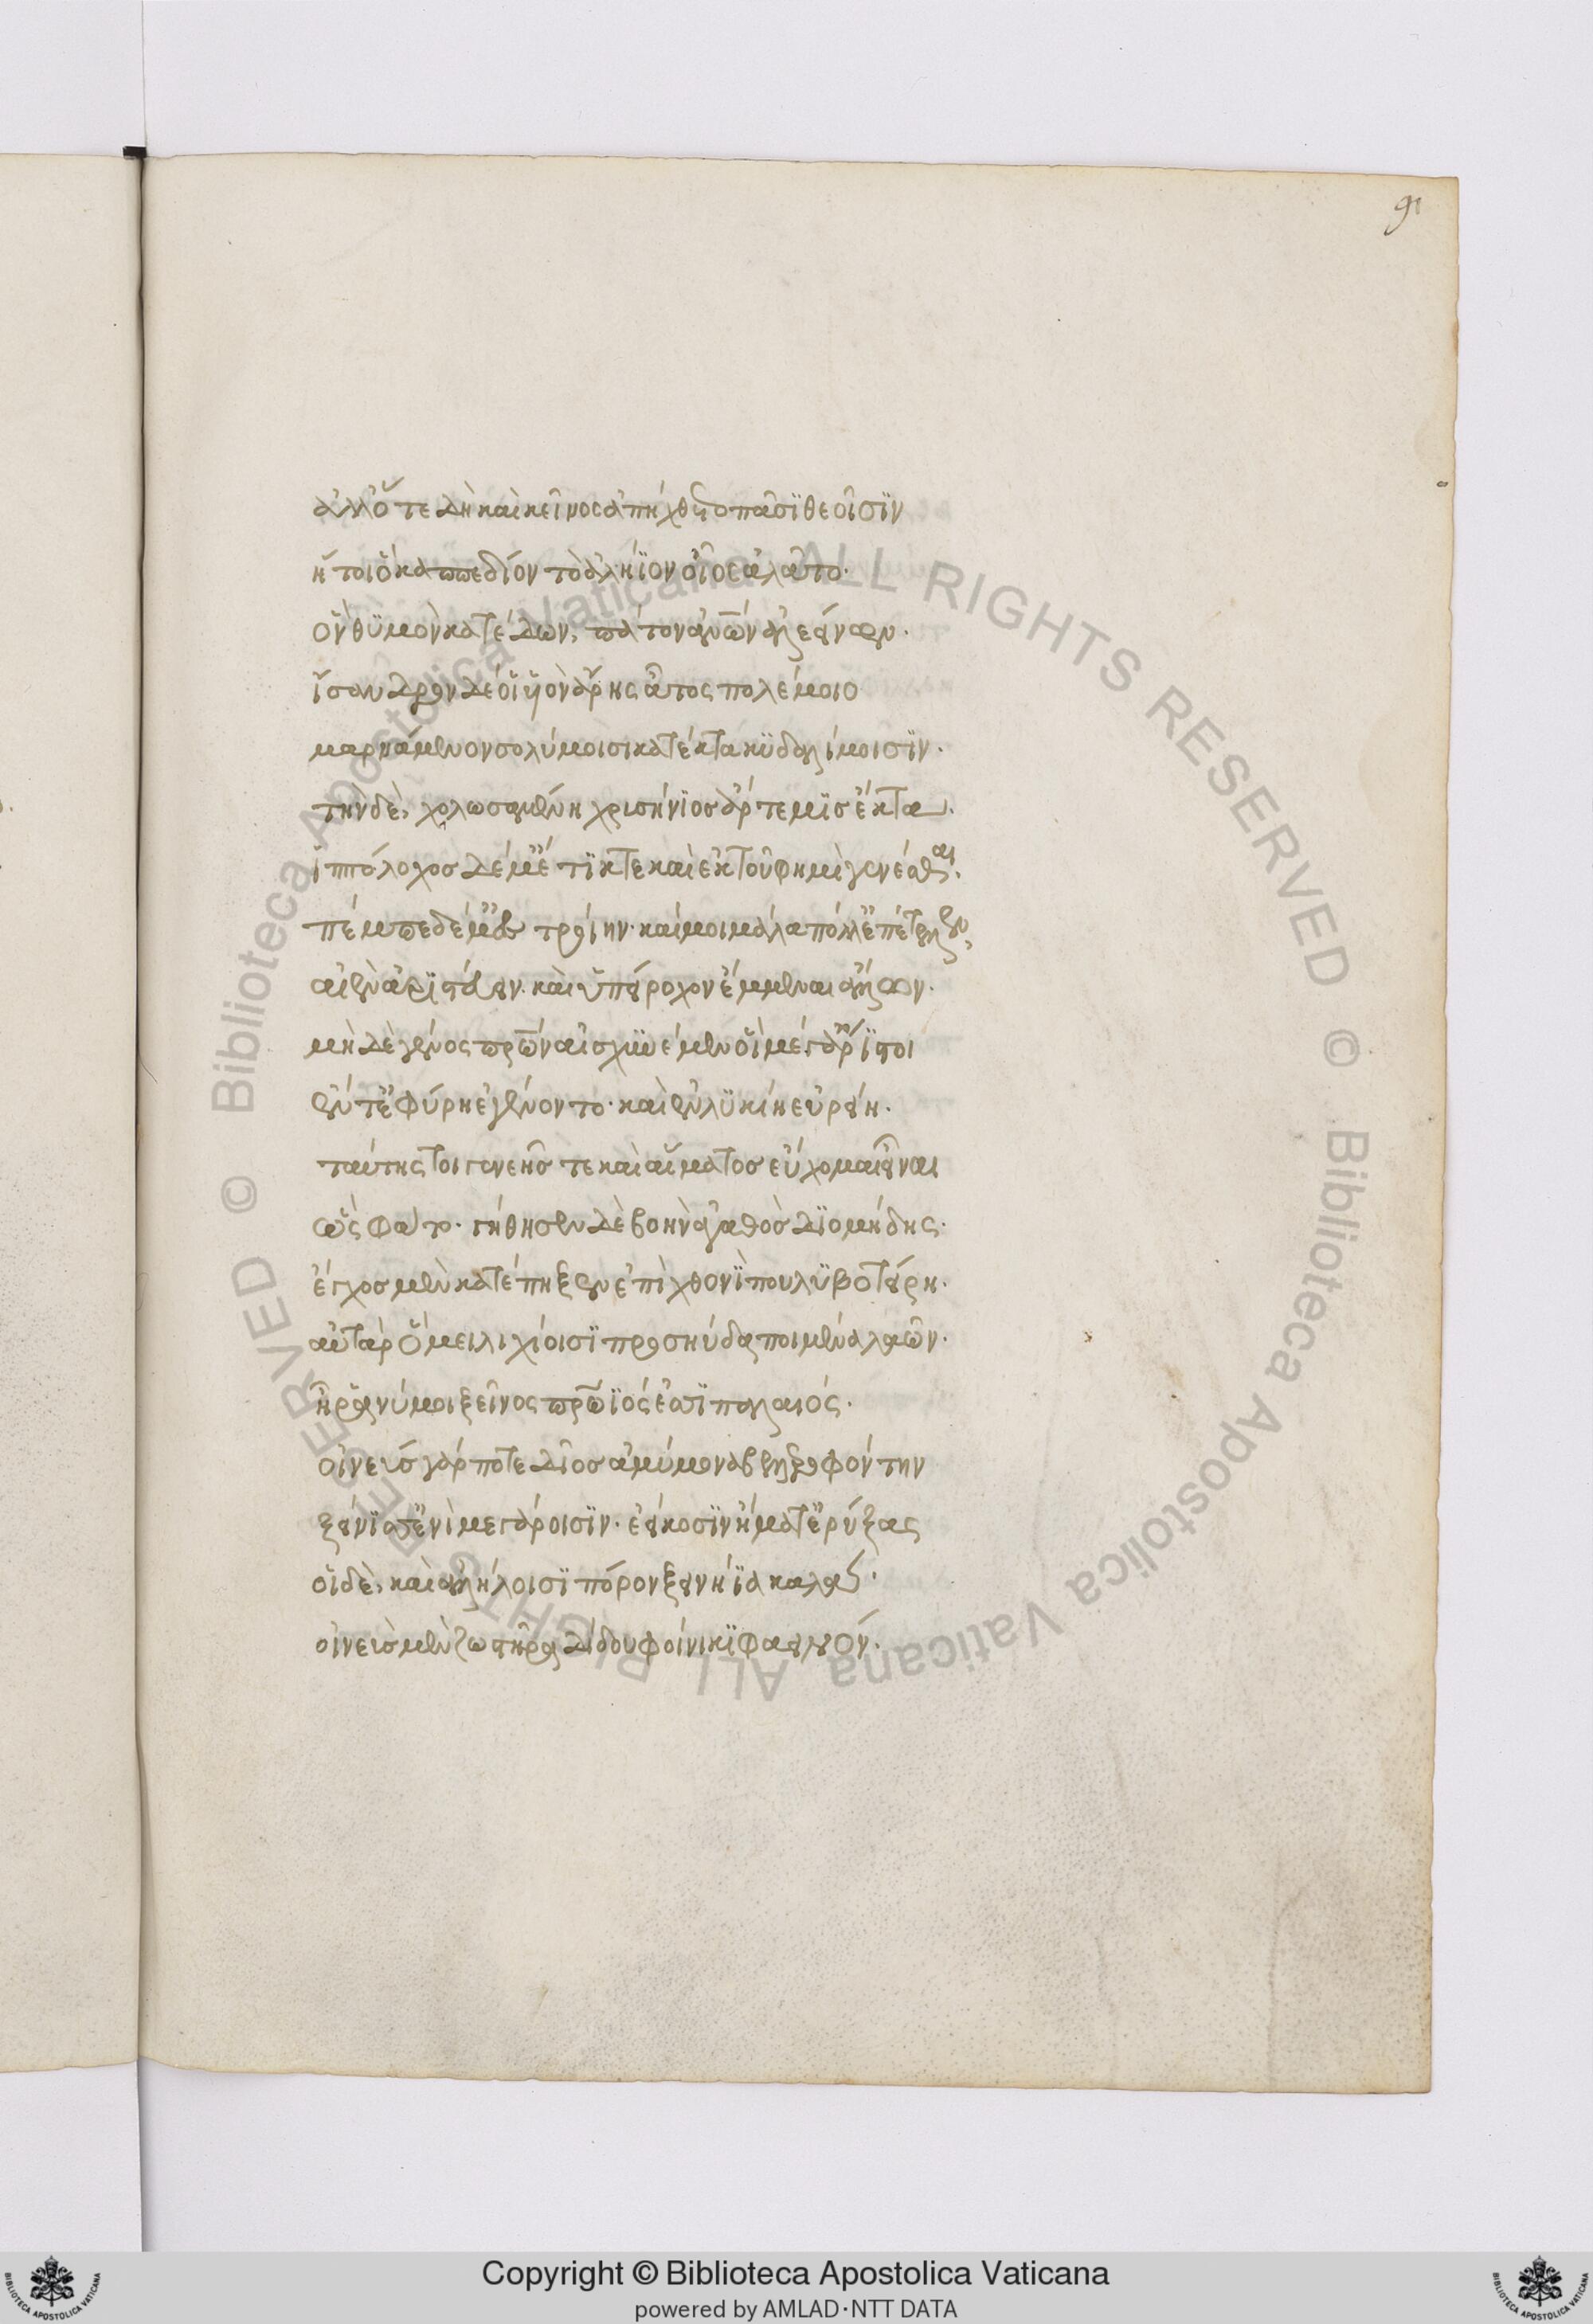 91
ἀλλ' ὅτε δὴ καὶ κεῖνος ἀπήχθετο πᾶσϊ θεοῖσϊν
ἤτοι ὃ κὰππεδίον τὸ ἀλήϊον οἶος ἀλᾶτο·
ὃν θϋμὸν κατέδων, πάτον ἀνθρώπων ἀλεείνων·
ἴσανδρον δέ οἱ υἱὸν ἄρης ἄτος πολέμοιο
μαρνάμενον σολύμοισι κατέκτα κϋδαλίμοισϊν·
τὴν δὲ, χολωσαμένη χρισήνϊος ἄρτεμϊς ἔκτα·
ἱππόλοχος δέ μ' ἔτϊκτε καὶ ἐκ τοῦ φημὶ γενέσθαι·
πέμπε δέ μ' ἐς τροίην· καί μοι μάλα πόλλ' ἐπέτελλεν,
αἰὲν ἀρϊστεύειν· καὶ ὑπείροχον ἔμμεναι ἄλλων·
μὴ δὲ γένος πατέρων αἰσχϋνέμεν οἳ μέγ' ἄρϊστοι
ἔν τ' ἐφύρη ἐγένοντο· καὶ ἐν λϋκίη εὐρείη·
ταύτης τοι γενεῆς τε καὶ αἵματος εὔχομαι εἶναι
ὣς φάτο· γήθησεν δὲ βοὴν ἀγαθὸς δϊομήδης·
ἔγχος μὲν κατέπηξεν ἐπὶ χθονῒ πουλϋβοτείρη·
αὐτὰρ ὃ μειλιχίοισϊ προσηύδα ποιμένα λαῶν·
ἦ ῥά νύ μοι ξεῖνος πατρώϊός ἐσσϊ παλαιός·
οἰνεὺς γάρ ποτε δῖος ἀμύμονα βελλεροφόντην
ξείνϊσ' ἐνὶ μεγάροισϊν· ἐείκοσϊν ἤματ' ἐρύξας
οἳ δὲ, καὶ ἀλλήλοισϊ πόρον ξεινήϊα καλά·
οἰνεὺς μὲν ζωστῆρα δίδου φοίνικϊ φαεινόν·
© Biblioteca Apostolica Vaticana ALL RIGHTS RESERVED © Biblioteca Apostolica Vaticana ALL RIGHTS RESERVED
Copyright © Biblioteca Apostolica Vaticana
powered by AMLAD·NTT DATA
BIBLIOTECA APOSTOLICA VATICANA
BIBLIOTECA APOSTOLICA VATICANA